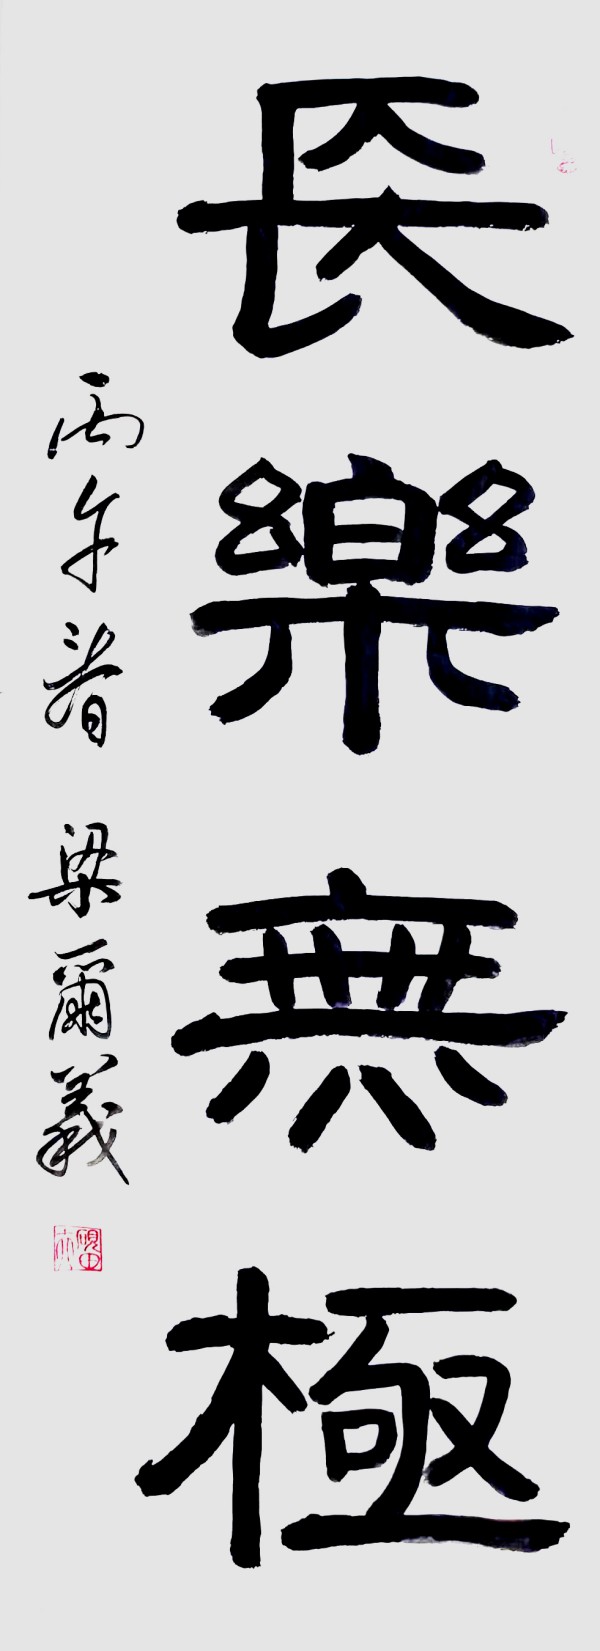 長樂無極
丙午春 梁爾義